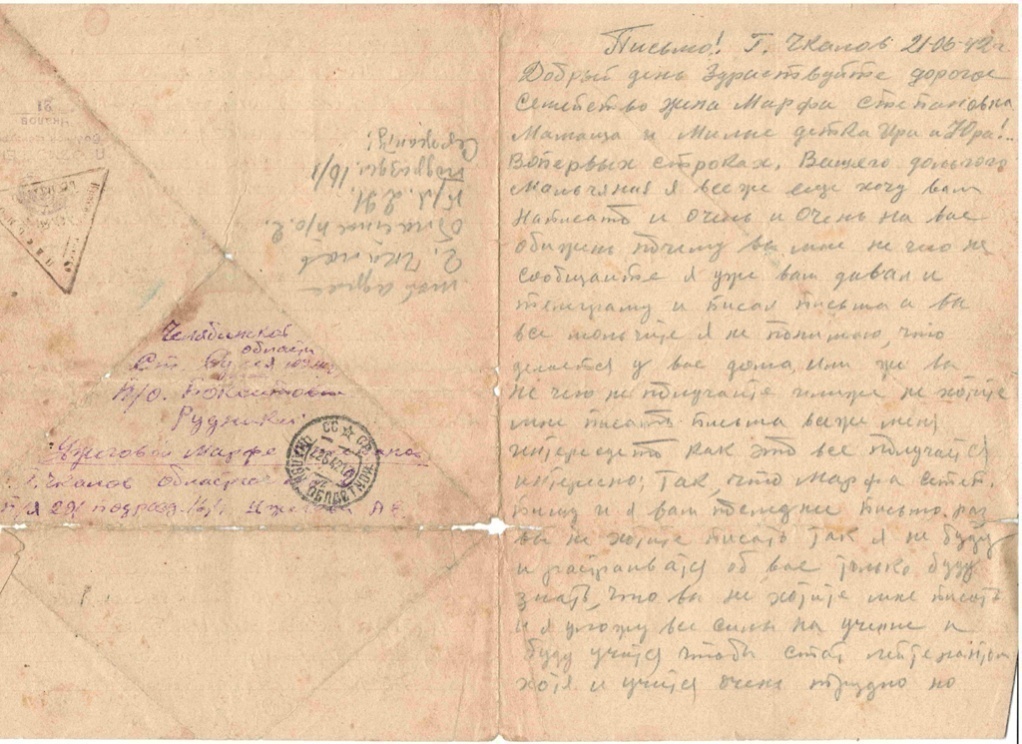 Письмо! Г. Чкалов 21-06-42 г
Добрый день Здраствуйте дорогое
Семейство жена Марфа Степановна
Мамаша и Милые детки Ира и Юра!..
Вопервых строках. Вашего дольгого
Мальчяния я все же еще хочу вам
Написать и очень и очень на вас
обижен почему вы мне не чего не
сообщаите я уже вам давал и
телеграму и писал письма а вы
все мольчите я не понимаю, что
делается у вас дома, или же вы
не чего не получаите или же не хотите
мне писать письма все же меня
интересует как это все получается
интересно; так, что Марфа Степ.
пишу и я вам последнее письмо раз
вы не хотите писать так я не буду
и растраиватся об вас только буду
знать, что вы не хотите мне писать
и я уложу все силы на учение и
буду учится чтобы стать лейтенантом
хотя и учится очень трудно но
мой адрес
г. Чкалов
областное п/о. 2.
п/я. 291
подразд. 16/1
Челябинской
области
Ст.
п/о.
Рудники
Марфе
г. Чкалов областное
п/я 291 подразд. 16/1